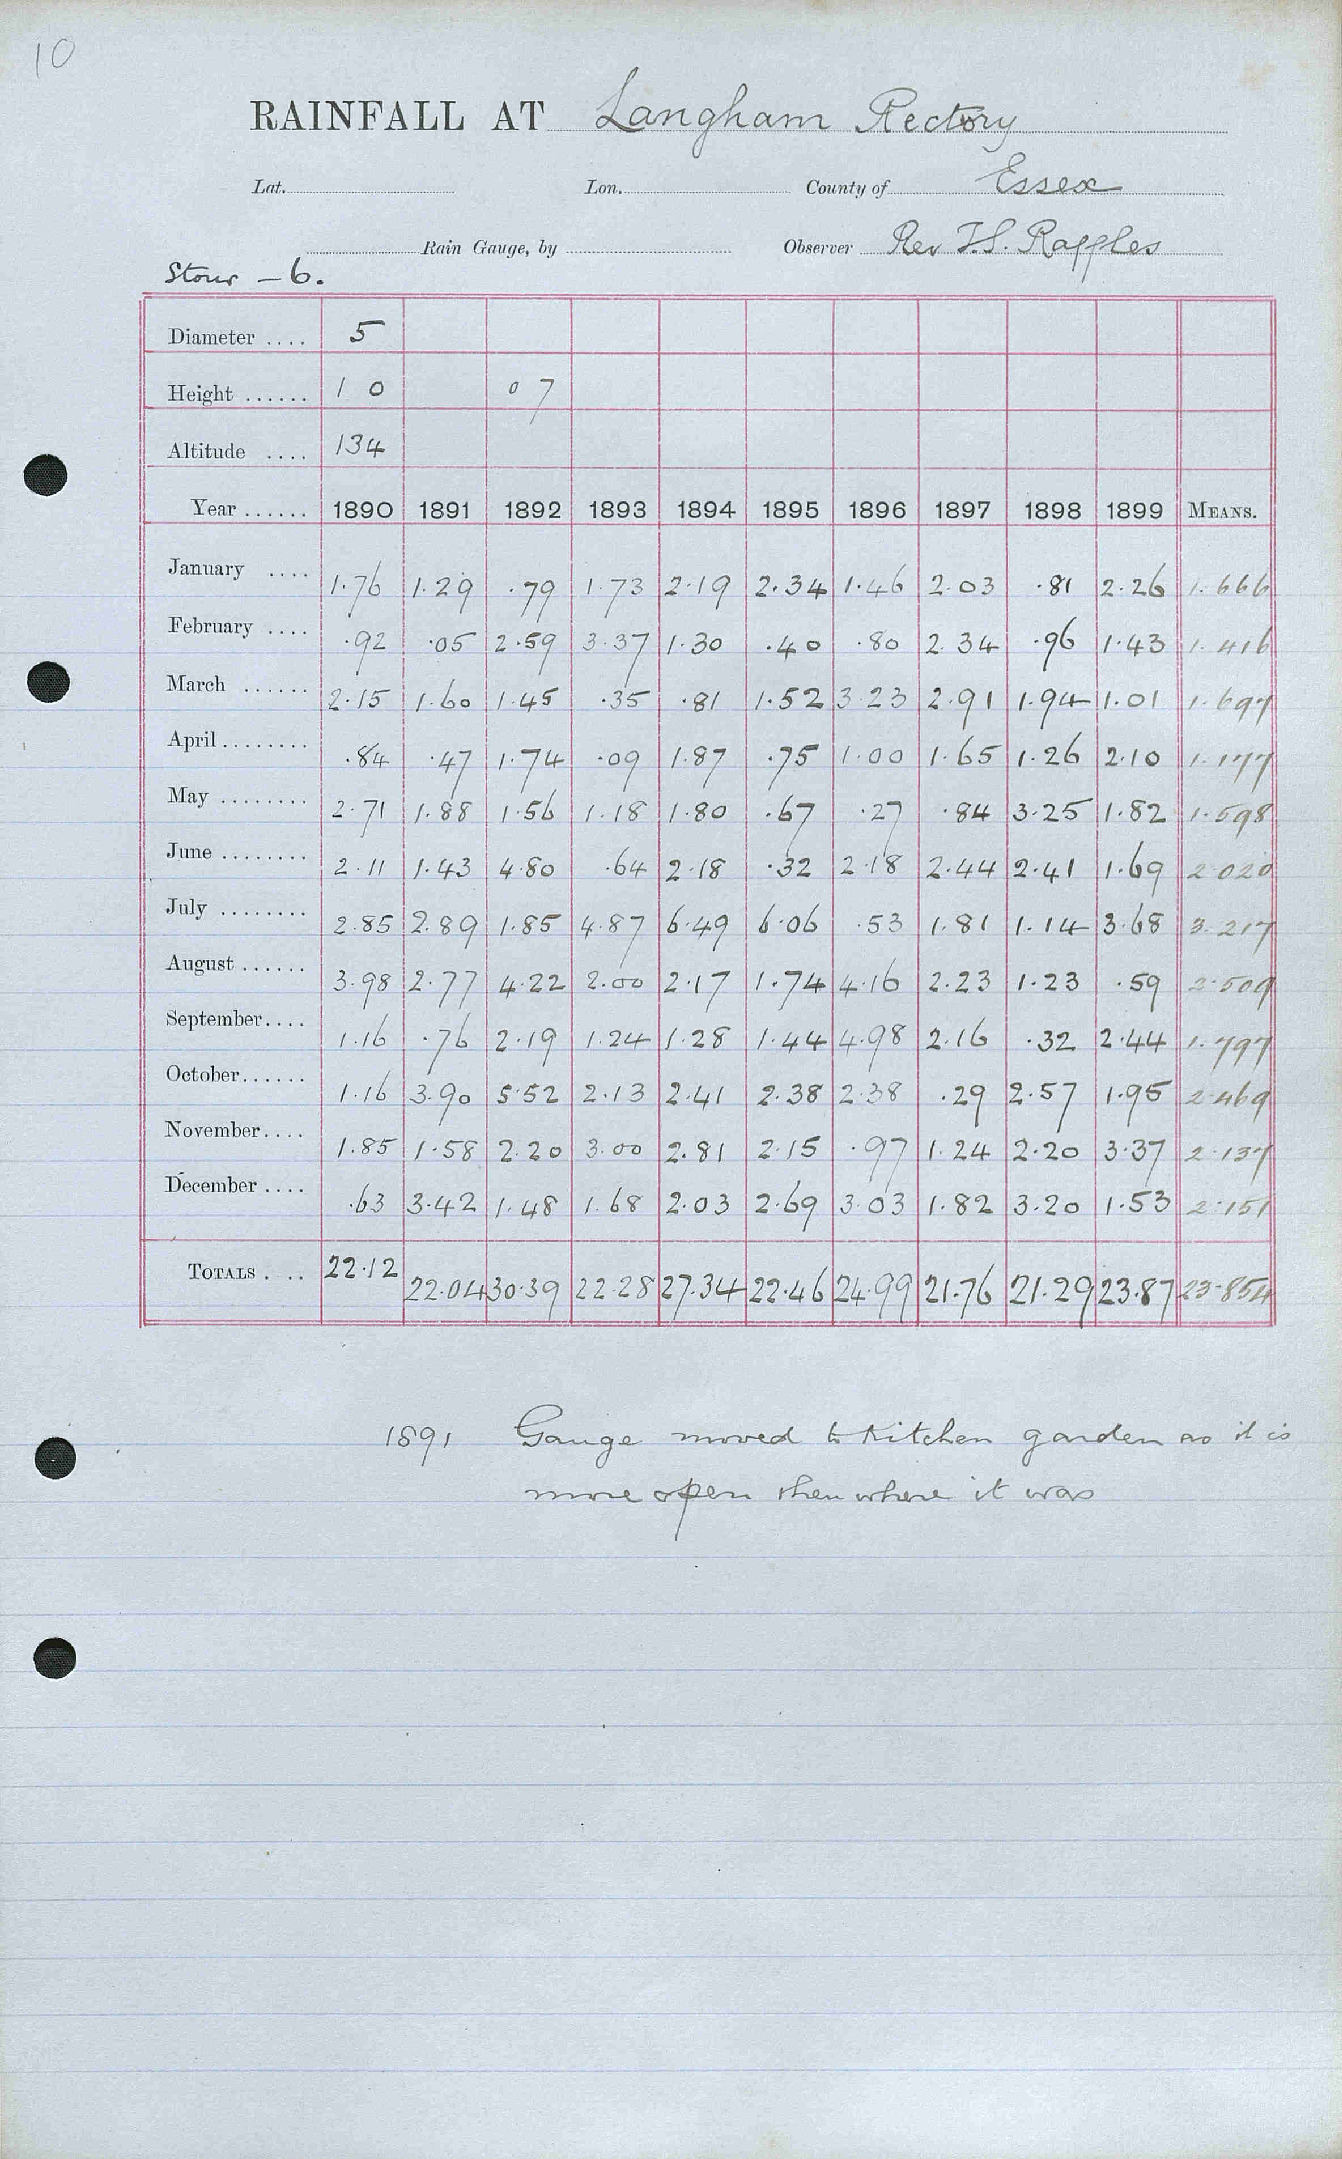 10
RAINFALL AT Langham Rectory
Lat. Lon. County of Essex
Rain Gauge, by Observer Rev T.S. Raffles
Stour - 6.
Diameter .... 5
Height ...... 1 0 0 7
Altitude .... 134
Year ...... 1890 1891 1892 1893 1894 1895 1896 1897 1898 1899 MEANS.
January .... 1.76 1.29 .79 1.73 2.19 2.34 1.46 2.03 .81 2.26 1.666
February .... .92 .05 2.59 3.37 1.30 .40 .80 2.34 .96 1.43 1.416
March ...... 2.15 1.60 1.45 .35 .81 1.52 3.23 2.91 1.94 1.01 1.697
April ........ .84 .47 1.74 .09 1.87 .75 1.00 1.65 1.26 2.10 1.177
May ........ 2.71 1.88 1.56 1.18 1.80 .67 .27 .84 3.25 1.82 1.598
June ........ 2.11 1.43 4.80 .64 2.18 .32 2.18 2.44 2.41 1.69 2.020
July ........ 2.85 2.89 1.85 4.87 6.49 6.06 .53 1.81 1.14 3.68 3.217
August ...... 3.98 2.77 4.22 2.00 2.17 1.74 4.16 2.23 1.23 .59 2.509
September .... 1.16 .76 2.19 1.24 1.28 1.44 4.98 2.16 .32 2.44 1.797
October ...... 1.16 3.90 5.52 2.13 2.41 2.38 2.38 .29 2.57 1.95 2.469
November .... 1.85 1.58 2.20 3.00 2.81 2.15 .97 1.24 2.20 3.37 2.137
December .... .63 3.42 1.48 1.68 2.03 2.69 3.03 1.82 3.20 1.53 2.151
TOTALS . .. 22.12 22.04 30.39 22.28 27.34 22.46 24.99 21.76 21.29 23.87 23.854
1891 Gauge moved to Kitchen garden as it is
more open then where it was